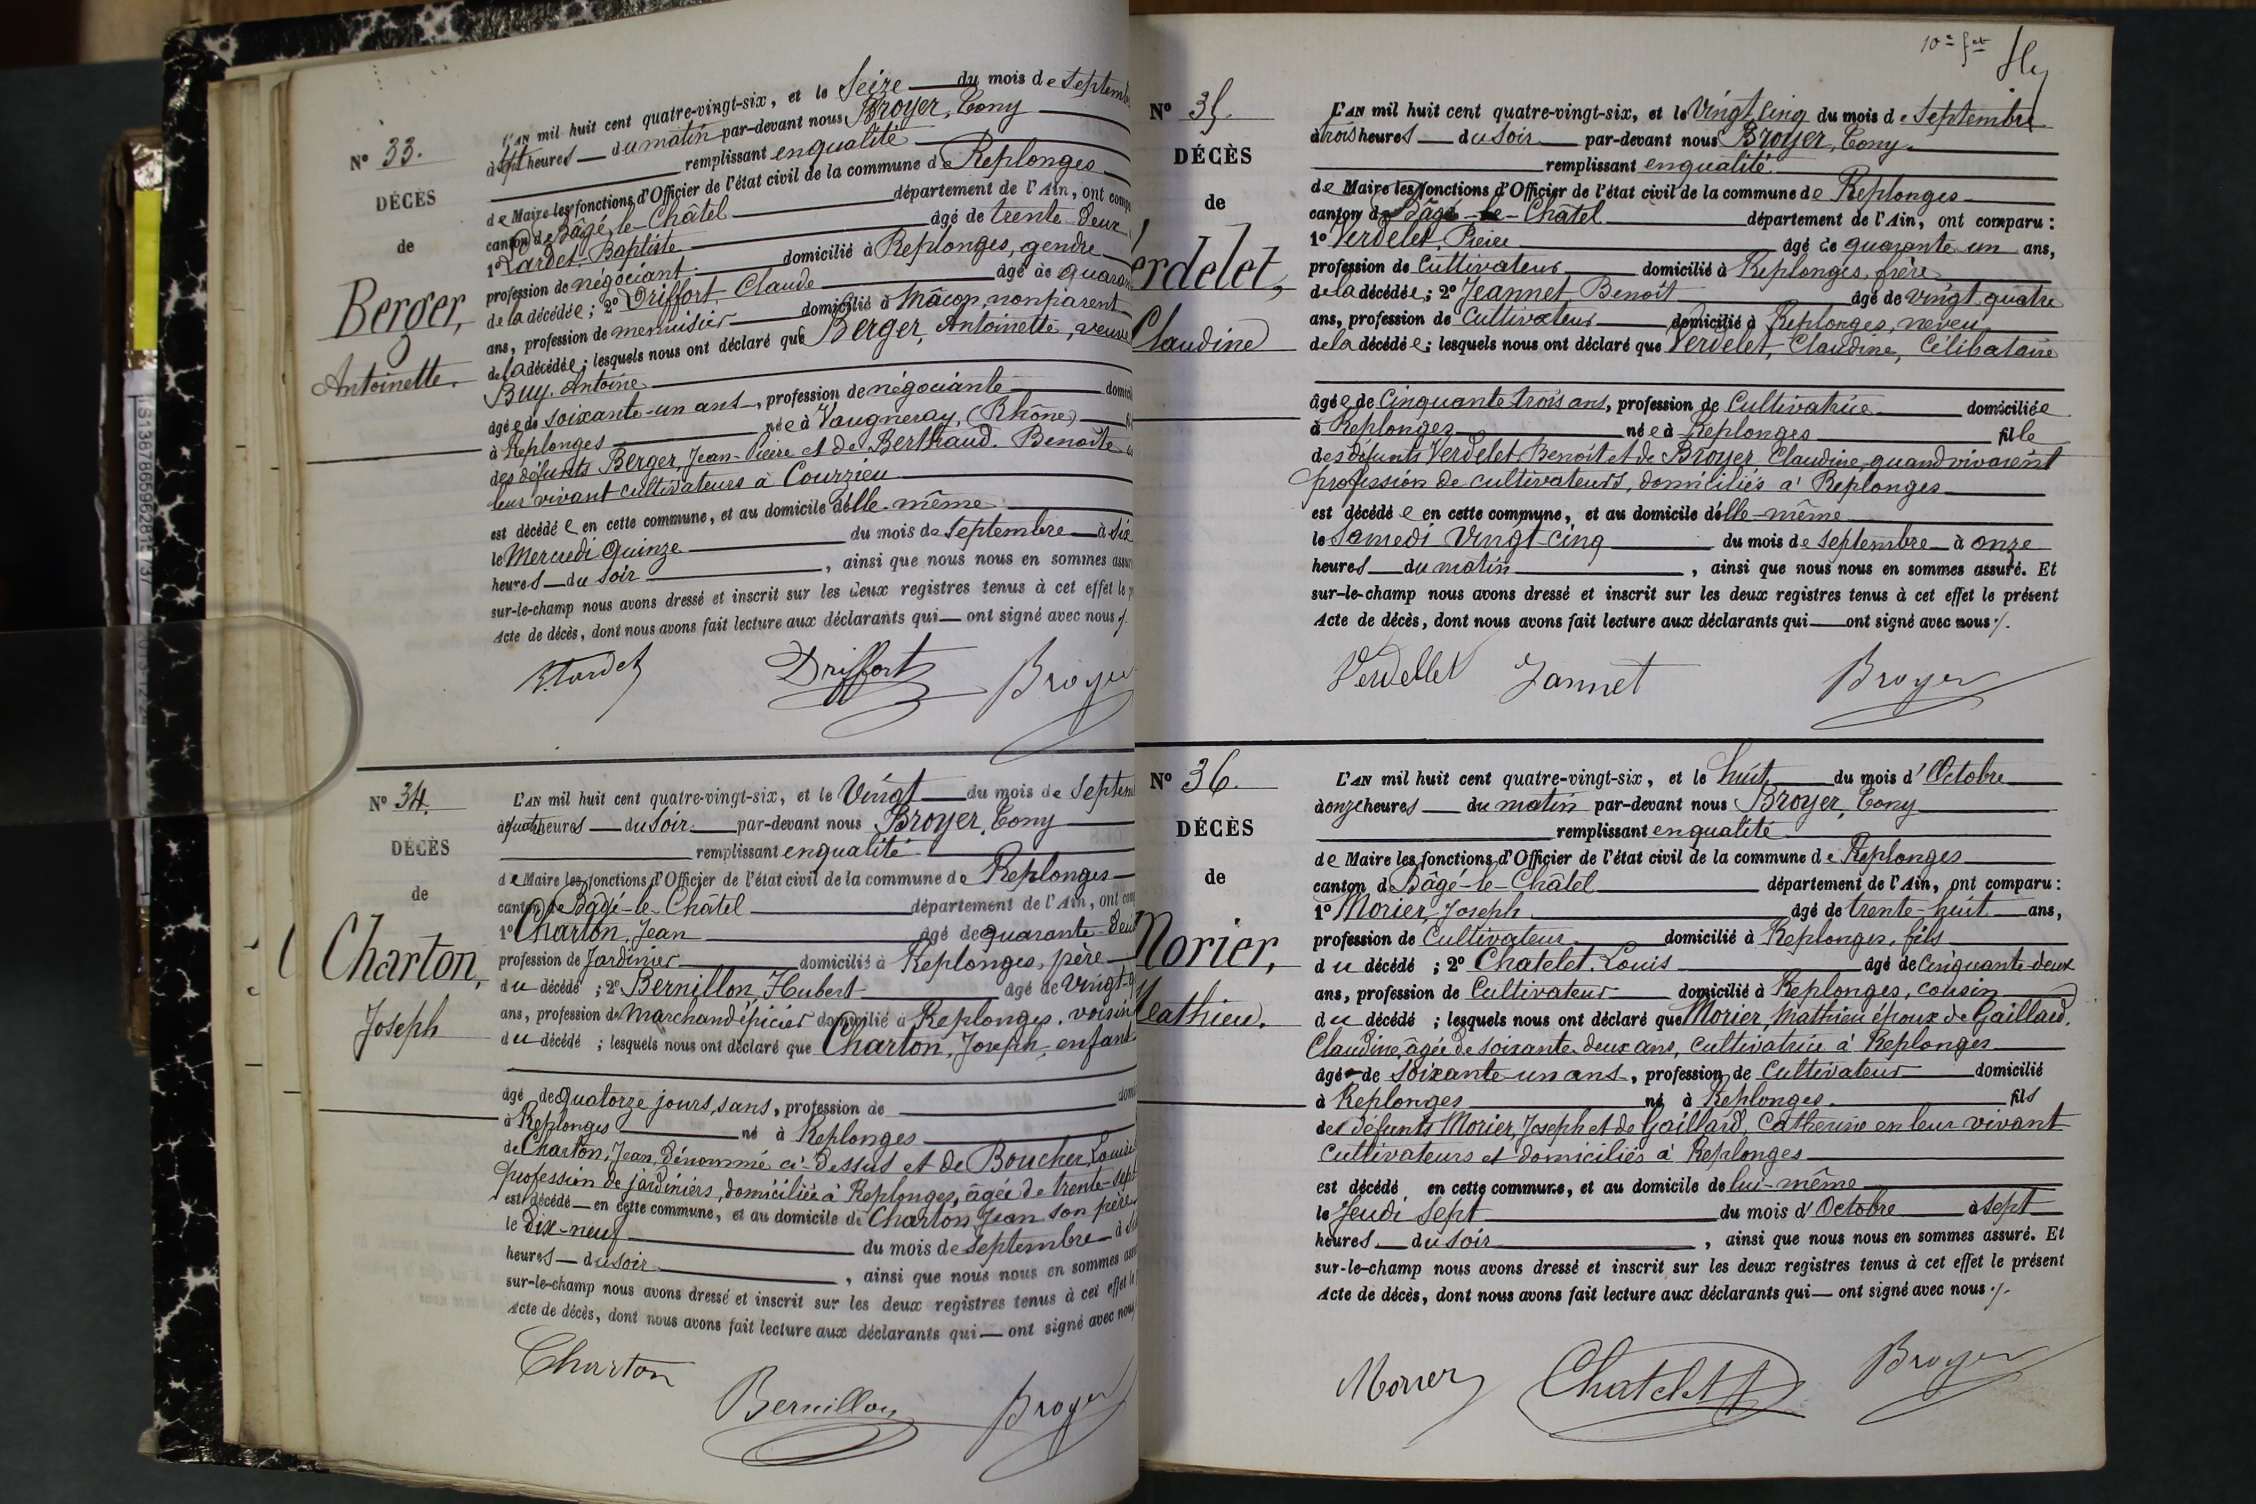 N° 33.
DÉCÈS
de
Berger,
Antoinette.
L'AN mil huit cent quatre-vingt-six, et le Seize du mois de Septemb
à sept heures du matin par-devant nous Broyer, Tony
remplissant en qualité
de Maire les fonctions d'Officier de l'état civil de la commune de Replonges
canton de Bâgé-le-Châtel département de l'Ain, ont comp
1° Lardet, Baptiste âgé de trente-deux
profession de négociant domicilié à Replonges, gendre
de la décédée ; 2° Driffort, Claude âgé de quaran
ans, profession de menuisier domicilié à Mâcon, non parent
de la décédée ; lesquels nous ont déclaré que Berger, Antoinette, veuve
Buy, Antoine
âgée de soixante-un ans, profession de négociante domicil
à Replonges née à Vaugneray, (Rhône)
des défunts Berger, Jean-Pierre et de Berthaud, Benoîte
leur vivant cultivateurs à Courzieu
est décédée en cette commune, et au domicile d'elle-même
le Mercredi Quinze du mois de septembre à six
heures du soir, ainsi que nous nous en sommes assur
sur-le-champ nous avons dressé et inscrit sur les deux registres tenus à cet effet le p
Acte de décès, dont nous avons fait lecture aux déclarants qui ont signé avec nous ./.
B. Lardet Driffort Broyer
N° 34.
DÉCÈS
de
Charton,
Joseph
L'AN mil huit cent quatre-vingt-six, et le Vingt du mois de Septem
à quatre heures du soir par-devant nous Broyer, Tony
remplissant en qualité
de Maire les fonctions d'Officier de l'état civil de la commune de Replonges
canton de Bâgé-le-Châtel département de l'Ain, ont com
1° Charton, Jean âgé de quarante-deux
profession de Jardinier domicilié à Replonges, père
du décédé ; 2° Bernillon, Hubert âgé de vingt-
ans, profession de Marchand épicier domicilié à Replonges, voisin
du décédé ; lesquels nous ont déclaré que Charton, Joseph, enfant
âgé de quatorze jours, sans, profession de domi
à Replonges né à Replonges
de Charton, Jean, dénommé ci-dessus et de Boucher, Louise
profession de jardiniers, domiciliée à Replonges, âgée de trente-sept
est décédé en cette commune, et au domicile de Charton Jean son père
le dix-neuf du mois de septembre à
heures du soir, ainsi que nous nous en sommes assu
sur-le-champ nous avons dressé et inscrit sur les deux registres tenus à cet effet le
Acte de décès, dont nous avons fait lecture aux déclarants qui ont signé avec nous
Charton
Bernillon Broyer
N° 35.
DÉCÈS
de
erdelet,
Claudine
L'AN mil huit cent quatre-vingt-six, et le Vingt cinq du mois de Septembre
à trois heures du soir par-devant nous Broyer, Tony
remplissant en qualité
de Maire les fonctions d'Officier de l'état civil de la commune de Replonges
canton de Bâgé-le-Châtel département de l'Ain, ont comparu :
1° Verdelet, Pierre âgé de quarante un ans,
profession de Cultivateur domicilié à Replonges, frère
de la décédée ; 2° Jeannet Benoît âgé de vingt quatre
ans, profession de Cultivateur domicilié à Replonges, neveu
de la décédée ; lesquels nous ont déclaré que Verdelet, Claudine, célibataire
âgée de Cinquante trois ans, profession de Cultivatrice domiciliée
à Replonges née à Replonges fille
des défunts Verdelet, Benoît et de Broyer Claudine, quand vivaient
profession de cultivateurs, domiciliés à Replonges
est décédée en cette commune, et au domicile d'elle-même
le Samedi Vingt-cinq du mois de septembre à onze
heures du matin, ainsi que nous nous en sommes assuré. Et
sur-le-champ nous avons dressé et inscrit sur les deux registres tenus à cet effet le présent
Acte de décès, dont nous avons fait lecture aux déclarants qui ont signé avec nous ./.
Verdellet Jannet Broyer
N° 36.
DÉCÈS
de
Morier,
Mathieu.
L'AN mil huit cent quatre-vingt-six, et le huit du mois d'Octobre
à onze heures du matin par-devant nous Broyer, Tony
remplissant en qualité
de Maire les fonctions d'Officier de l'état civil de la commune de Replonges
canton de Bâgé-le-Châtel département de l'Ain, ont comparu :
1° Morier, Joseph âgé de trente-huit ans,
profession de Cultivateur domicilié à Replonges, fils
du décédé ; 2° Chatelet, Louis âgé de cinquante-deux
ans, profession de Cultivateur domicilié à Replonges, cousin
du décédé ; lesquels nous ont déclaré que Morier, Mathieu époux de Gaillard,
Claudine, âgée de soixante-deux ans, cultivatrice à Replonges
âgé de soixante-un ans, profession de Cultivateur domicilié
à Replonges né à Replonges fils
des défunts Morier, Joseph et de Gaillard, Catherine en leur vivant
cultivateurs et domiciliés à Replonges
est décédé en cette commune, et au domicile de lui-même
le Jeudi Sept du mois d'Octobre à sept
heures du soir, ainsi que nous nous en sommes assuré. Et
sur-le-champ nous avons dressé et inscrit sur les deux registres tenus à cet effet le présent
Acte de décès, dont nous avons fait lecture aux déclarants qui ont signé avec nous ./.
Morier Chatelet Broyer